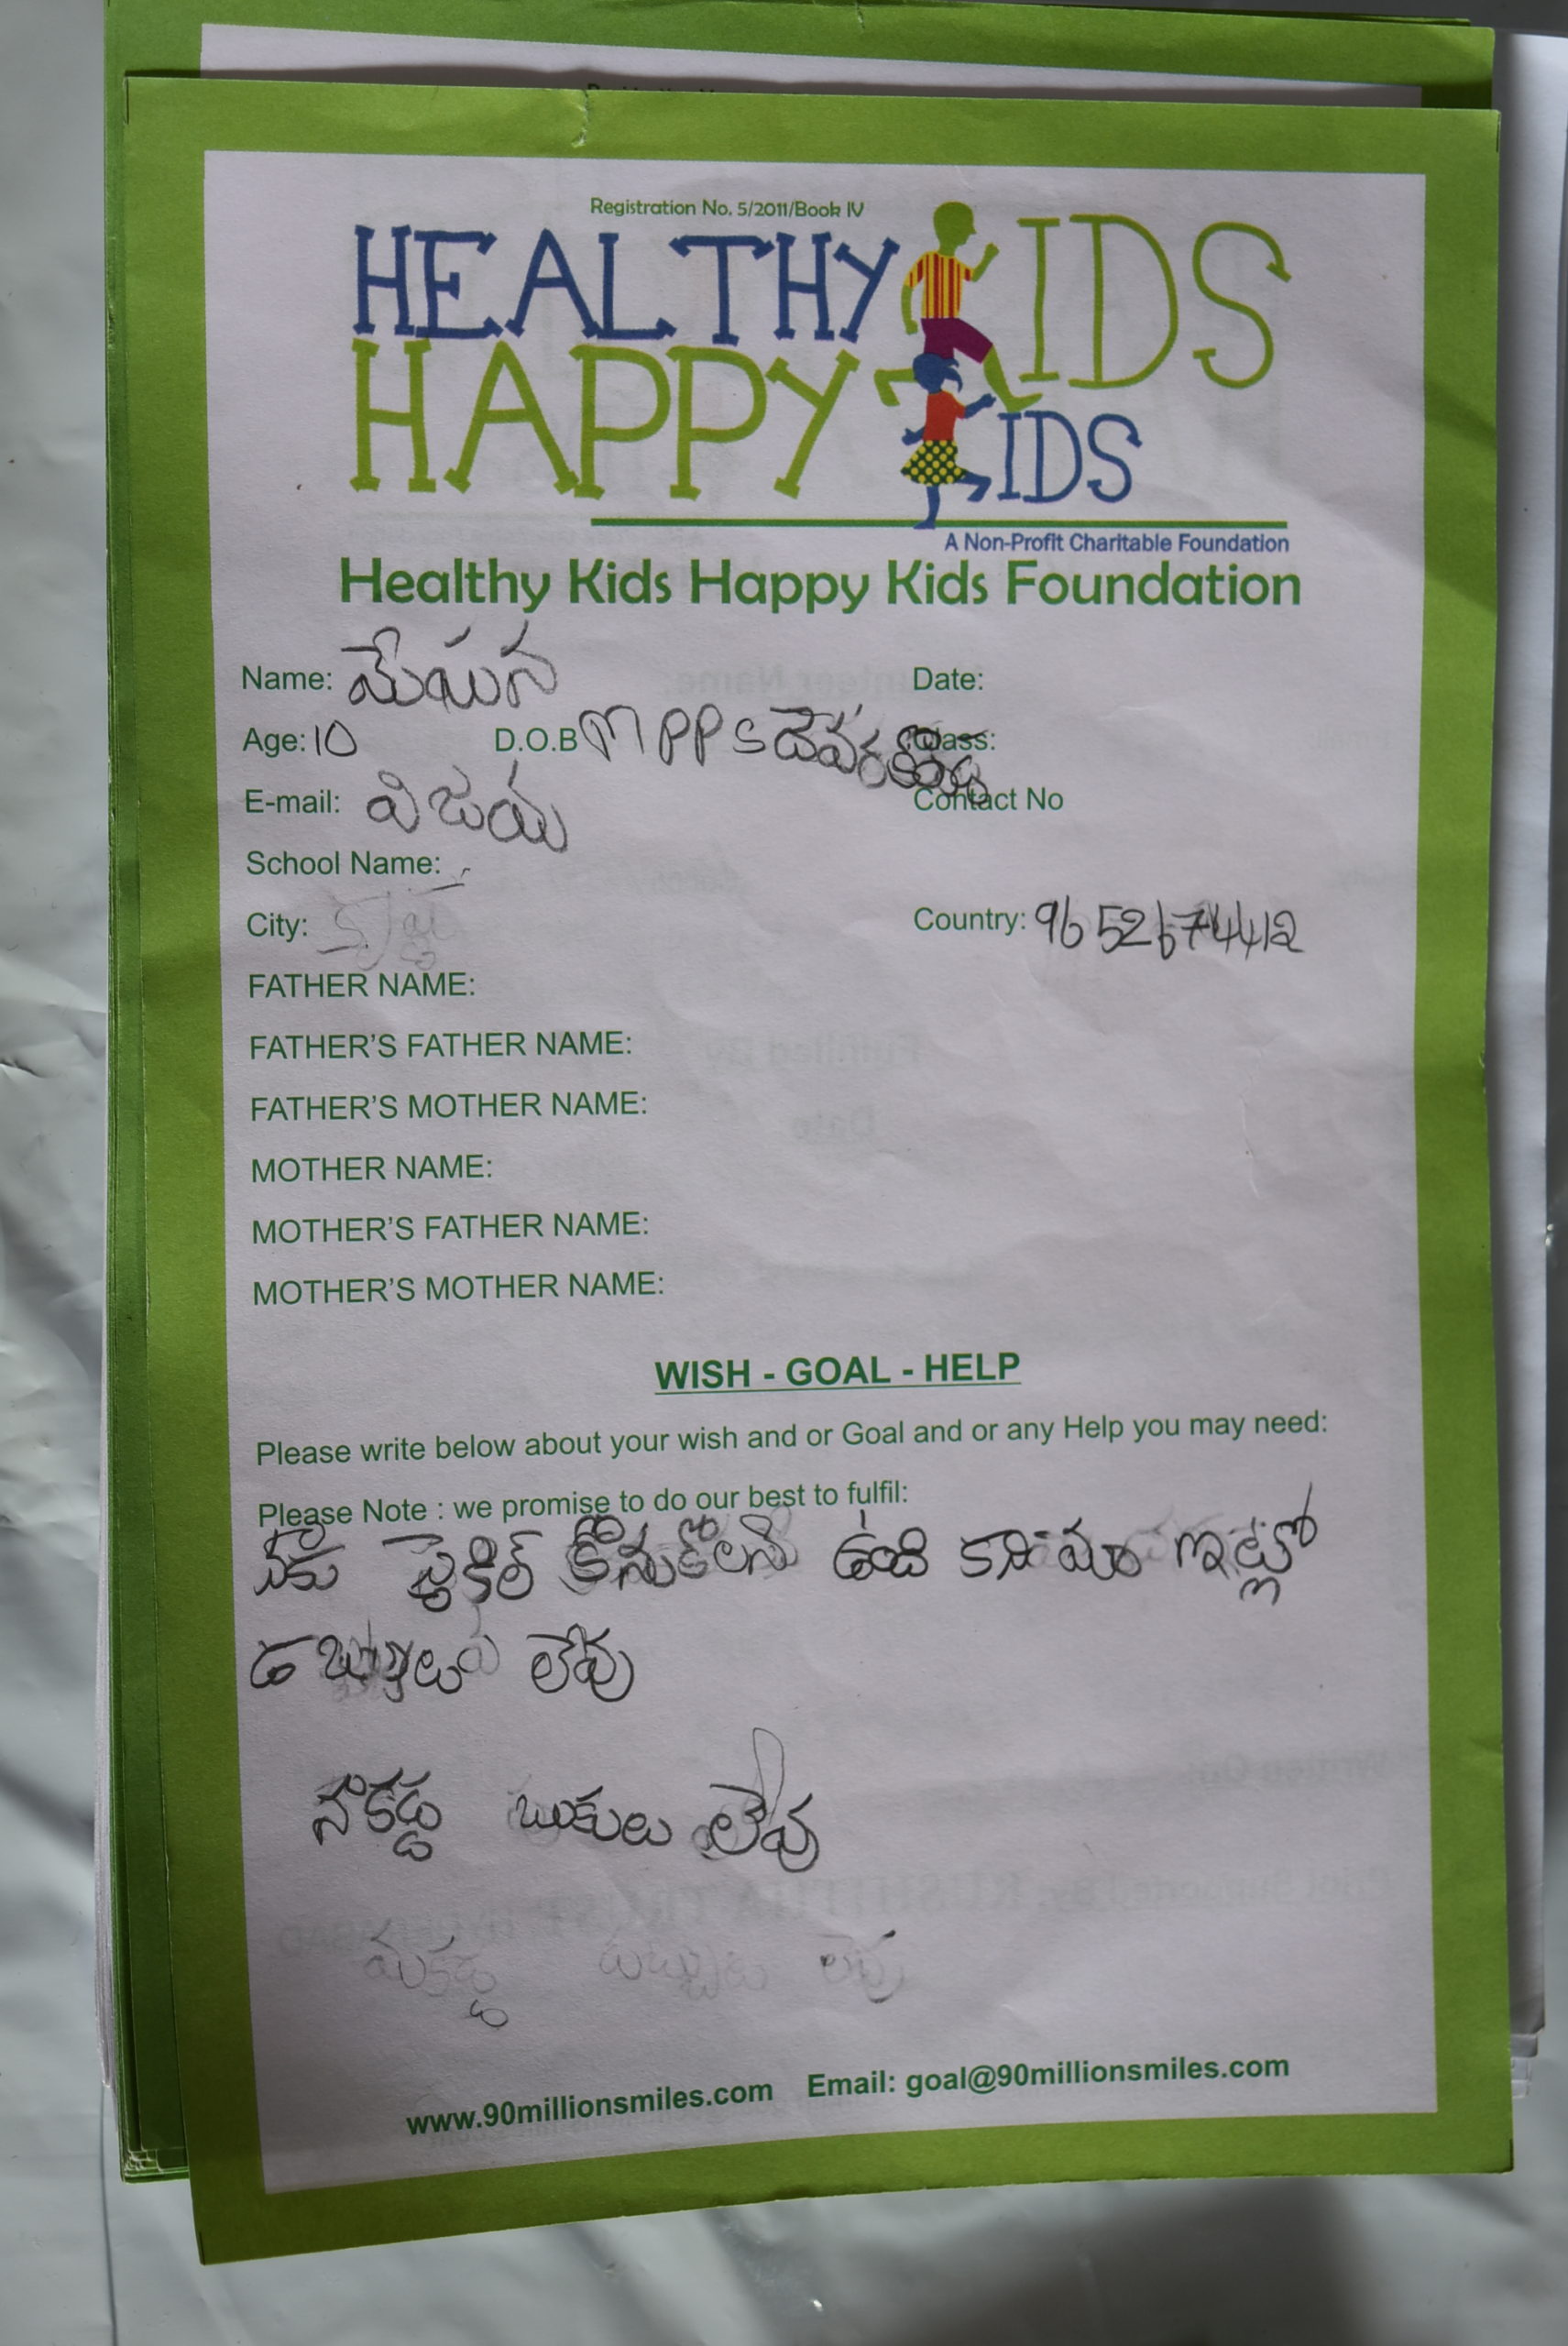 Registration No. 5/2011/Book IV
HEALTHY KIDS
HAPPY KIDS
A Non-Profit Charitable Foundation
Healthy Kids Happy Kids Foundation
Name: మేఘన Date:
Age: 10 D.O.B MPPS Class:
E-mail: విజయ Contact No
School Name:
City: Country: 9652674412
FATHER NAME:
FATHER'S FATHER NAME:
FATHER'S MOTHER NAME:
MOTHER NAME:
MOTHER'S FATHER NAME:
MOTHER'S MOTHER NAME:
WISH - GOAL - HELP
Please write below about your wish and or Goal and or any Help you may need:
Please Note : we promise to do our best to fulfil:
కొనుకోలని ఉంది కాని మా ఇట్లో
లేవు
నాకడ్డ బుకులు లేవు
మకడ్డ లేవు
www.90millionsmiles.com Email: goal@90millionsmiles.com